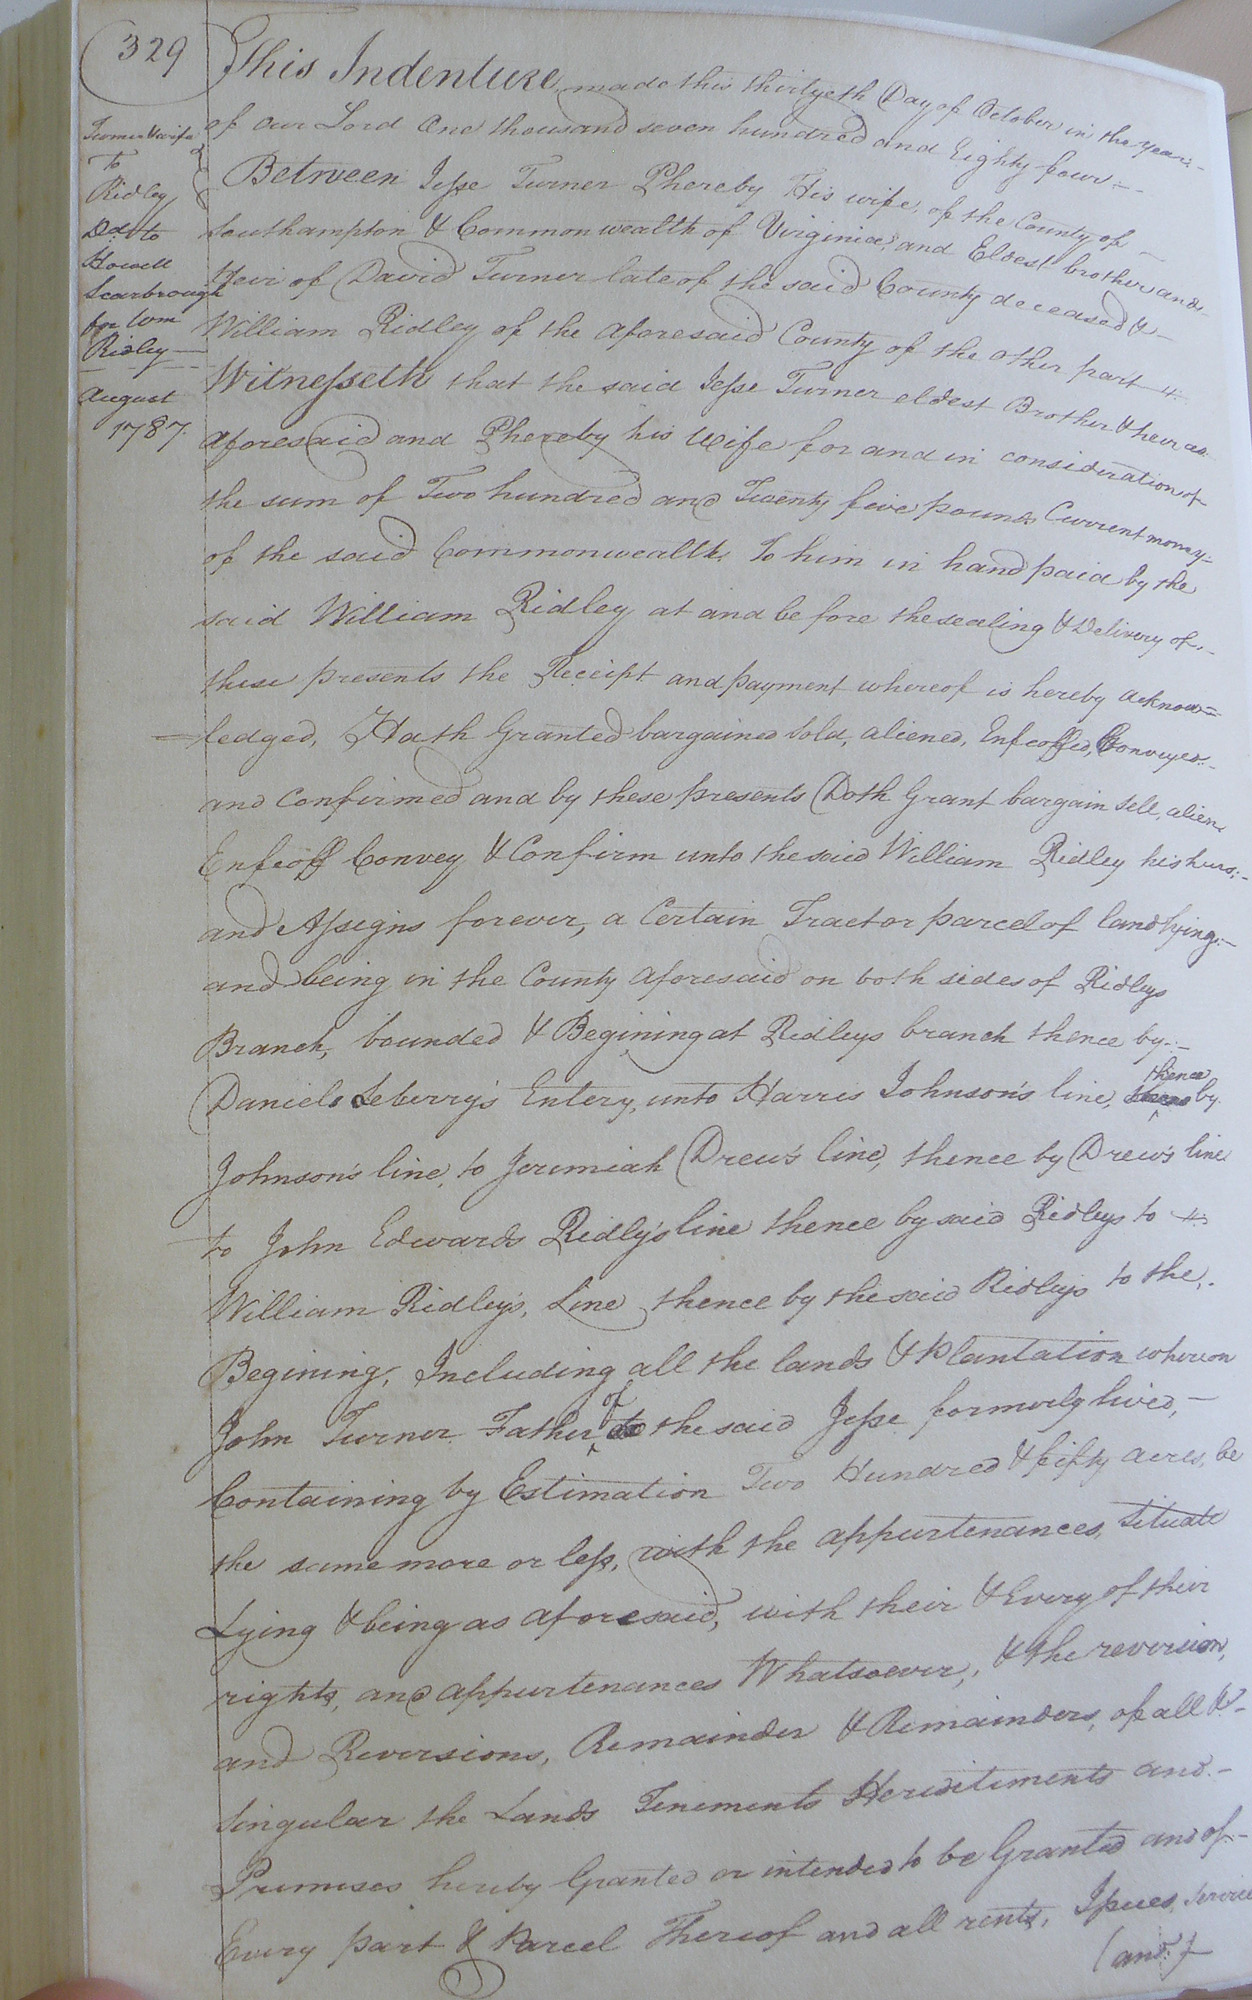 329
Turner & wife
To
Ridley
Dd. to
Howell
Scarbrough
for Wm
Ridley
August
1787.
This Indenture made this thirtyeth Day of October in the year
of our Lord One thousand seven hundred and Eighty four
Between Jesse Turner Phereby His wife, of the County of
Southampton & Commonwealth of Virginia, and Eldest brother and
Heir of David Turner late of the said County deceased &
William Ridley of the aforesaid County of the other part
Witnesseth that the said Jesse Turner eldest Brother & heir as
aforesaid and Phereby his Wife for and in consideration of
the sum of Two hundred and Twenty five pounds Current money
of the said Commonwealth. To him in hand paid by the
said William Ridley at and before the sealing & Delivery of
these presents the Receipt and payment whereof is hereby acknow=
=ledged, Hath Granted bargained Sold, aliened, Enfeoffed, Conveyed
and Confirmed and by these presents Doth Grant bargain Sell, alien
Enfeoff Convey & Confirm unto the said William Ridley his heirs,
and Assigns forever, a Certain Tract or parcel of land lying
and being in the County aforesaid on both sides of Ridleys
Branch, bounded & Begining at Ridleys branch thence by
Daniels Seberry's Entery, unto Harris Johnson's line, thence by
Johnson's line, to Jeremiah Drew's line, thence by Drew's line
to John Edwards Ridly's line thence by said Ridleys to
William Ridley's, Line thence by the said Ridleys to the
Begining, Including all the lands & Plantation whereon
John Turner Father of the said Jesse formerly lived,
Containing by Estimation Two Hundred & fifty acres, be
the same more or less, with the appurtenances, Situate
Lying & being as aforesaid, with their & Every of their
rights, and appurtenances Whatsoever, & the reversion,
and Reversions, Remainder & Remainders, of all &
Singular the Lands Tenements Hereditiments and
Premises hereby Granted or intended to be Granted and of
Every part & Parcel Thereof and all rents, Issues, Service
(and)